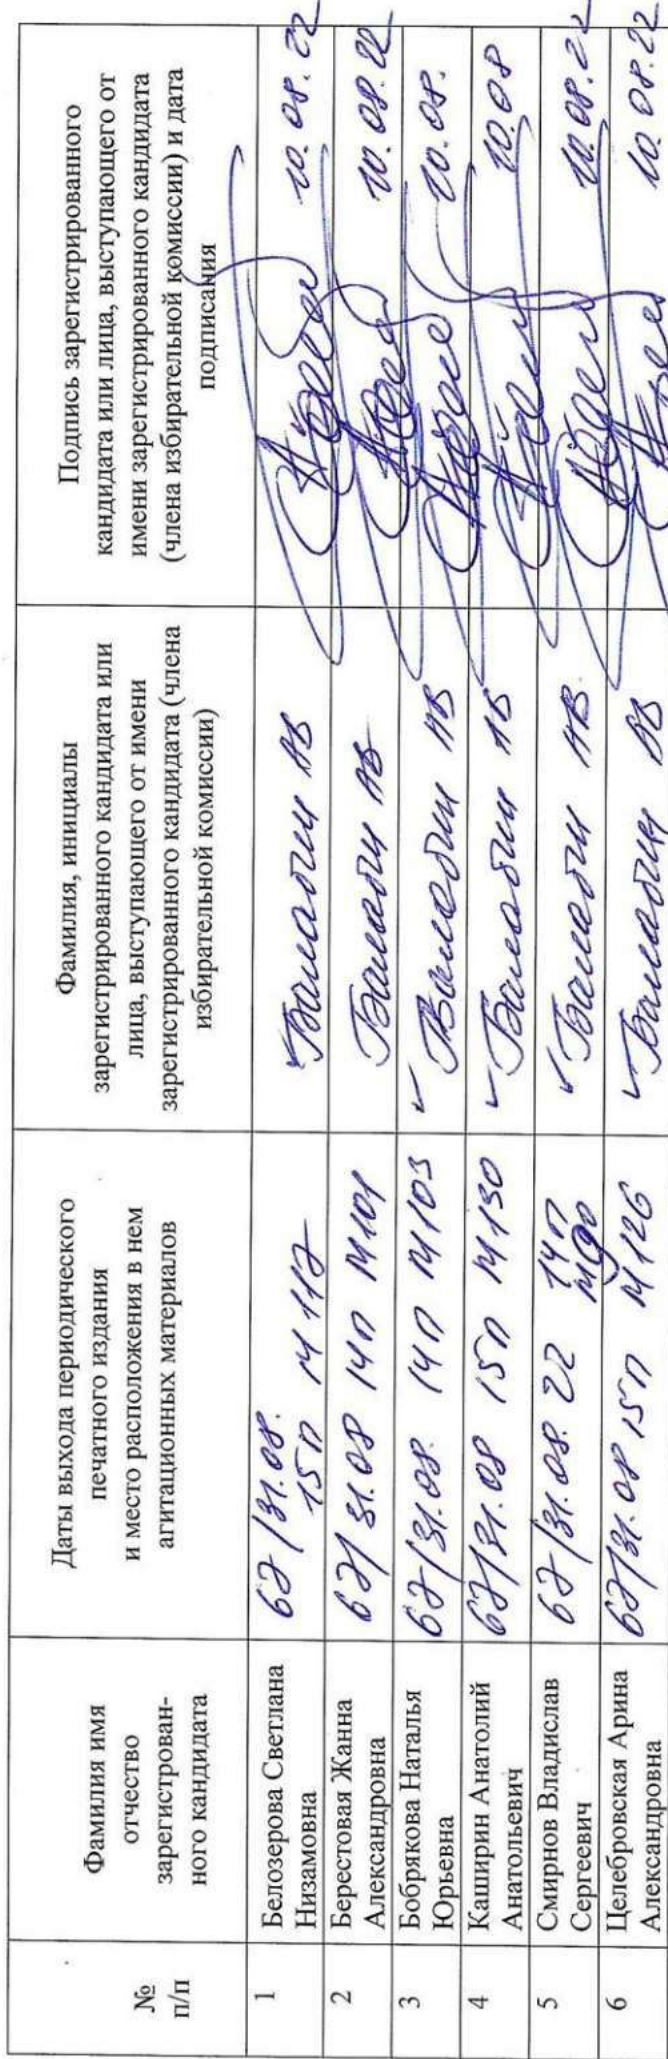 №
п/п
Фамилия имя
отчество
зарегистрирован-
ного кандидата
Даты выхода периодического
печатного издания
и место расположения в нем
агитационных материалов
Фамилия, инициалы
зарегистрированного кандидата или
лица, выступающего от имени
зарегистрированного кандидата (члена
избирательной комиссии)
Подпись зарегистрированного
кандидата или лица, выступающего от
имени зарегистрированного кандидата
(члена избирательной комиссии) и дата
подписания
1
Белозерова Светлана
Низамовна
62/31.08.
15п М 112
Балабин АВ
10.08.22
2
Берестовая Жанна
Александровна
62/31.08 14п М101
Балабин АВ
10.08.22
3
Бобрякова Наталья
Юрьевна
62/31.08. 14п М103
Балабин АВ
10.08.
4
Каширин Анатолий
Анатольевич
62/31.08 15п М130
Балабин АВ
10.08
5
Смирнов Владислав
Сергеевич
62/31.08.22 14п
М90
Балабин АВ.
10.08.22
6
Целебровская Арина
Александровна
62/31.08 15п М126
Балабин АВ
10.08.22